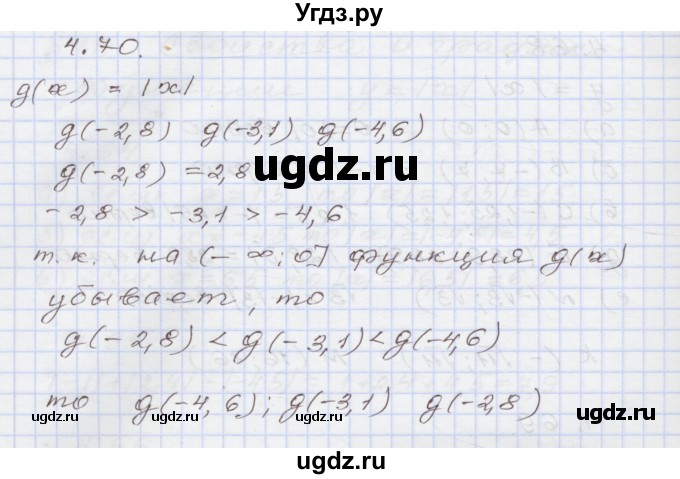 Угдз.ру
4.70.
g(x) = |x|
g(-2,8) g(-3,1) g(-4,6)
g(-2,8) = 2,8
ugdz.ru
-2,8 > -3,1 > -4,6
т.к. на (-∞; 0] функция g(x)
убывает, то
g(-2,8) < g(-3,1) < g(-4,6)
то g(-4,6); g(-3,1) g(-2,8)
ugdz.ru ugdz.ru ugdz.ru
ugdz.ru